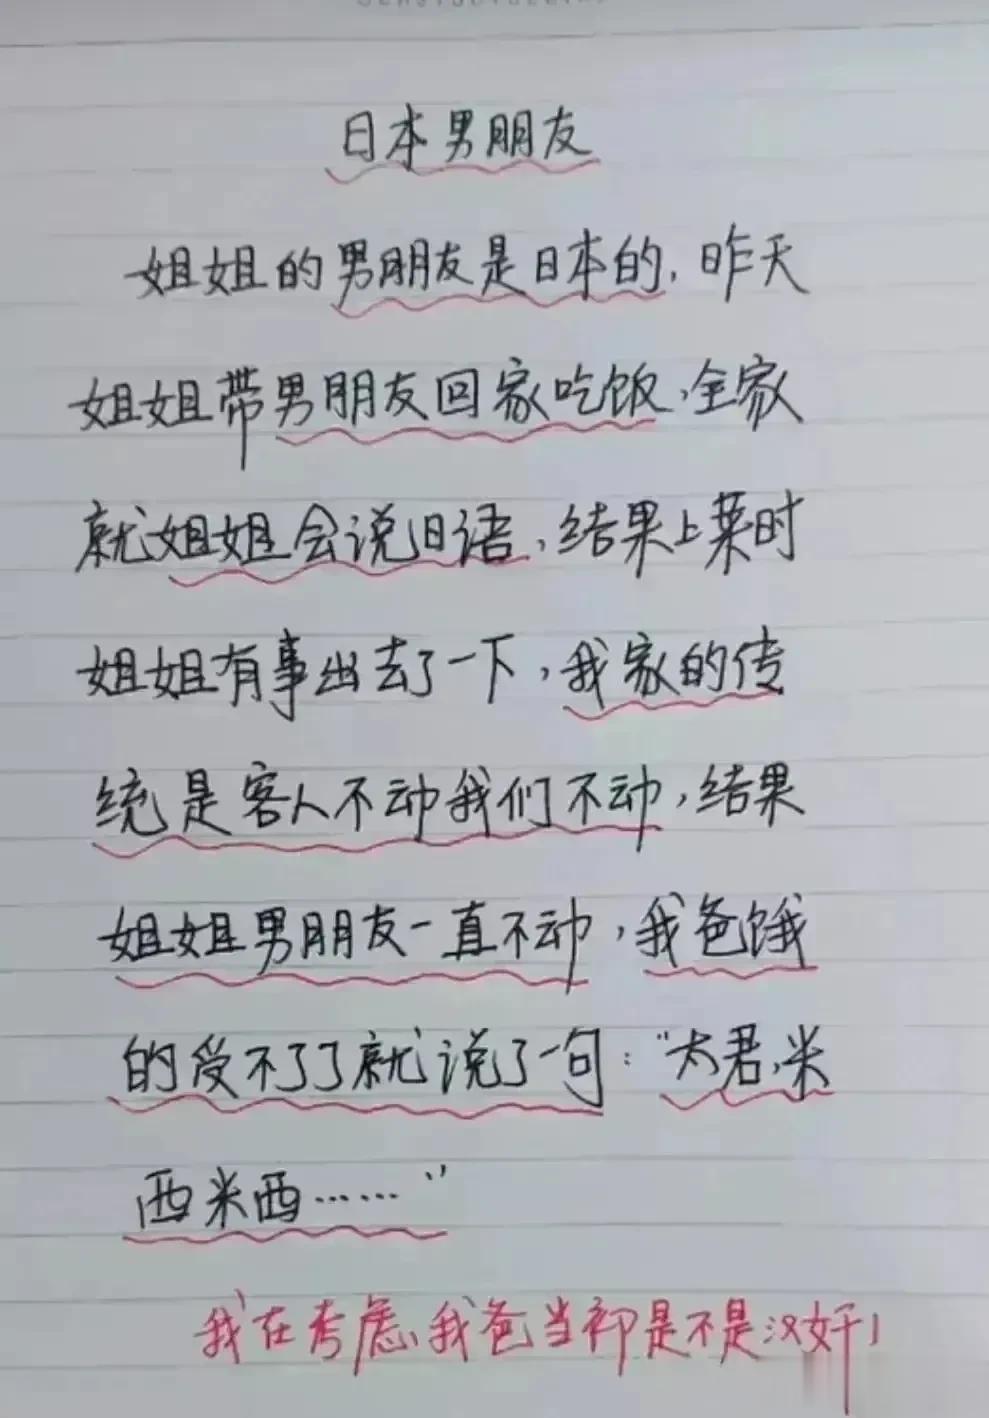 日本男朋友
姐姐的男朋友是日本的,昨天
姐姐带男朋友回家吃饭,全家
就姐姐会说日语,结果上菜时
姐姐有事出去了一下,我家的传
统是客人不动我们不动,结果
姐姐男朋友一直不动,我爸饿
的受不了了就说了一句:“太君,米
西米西……”
我在考虑,我爸当初是不是汉奸!